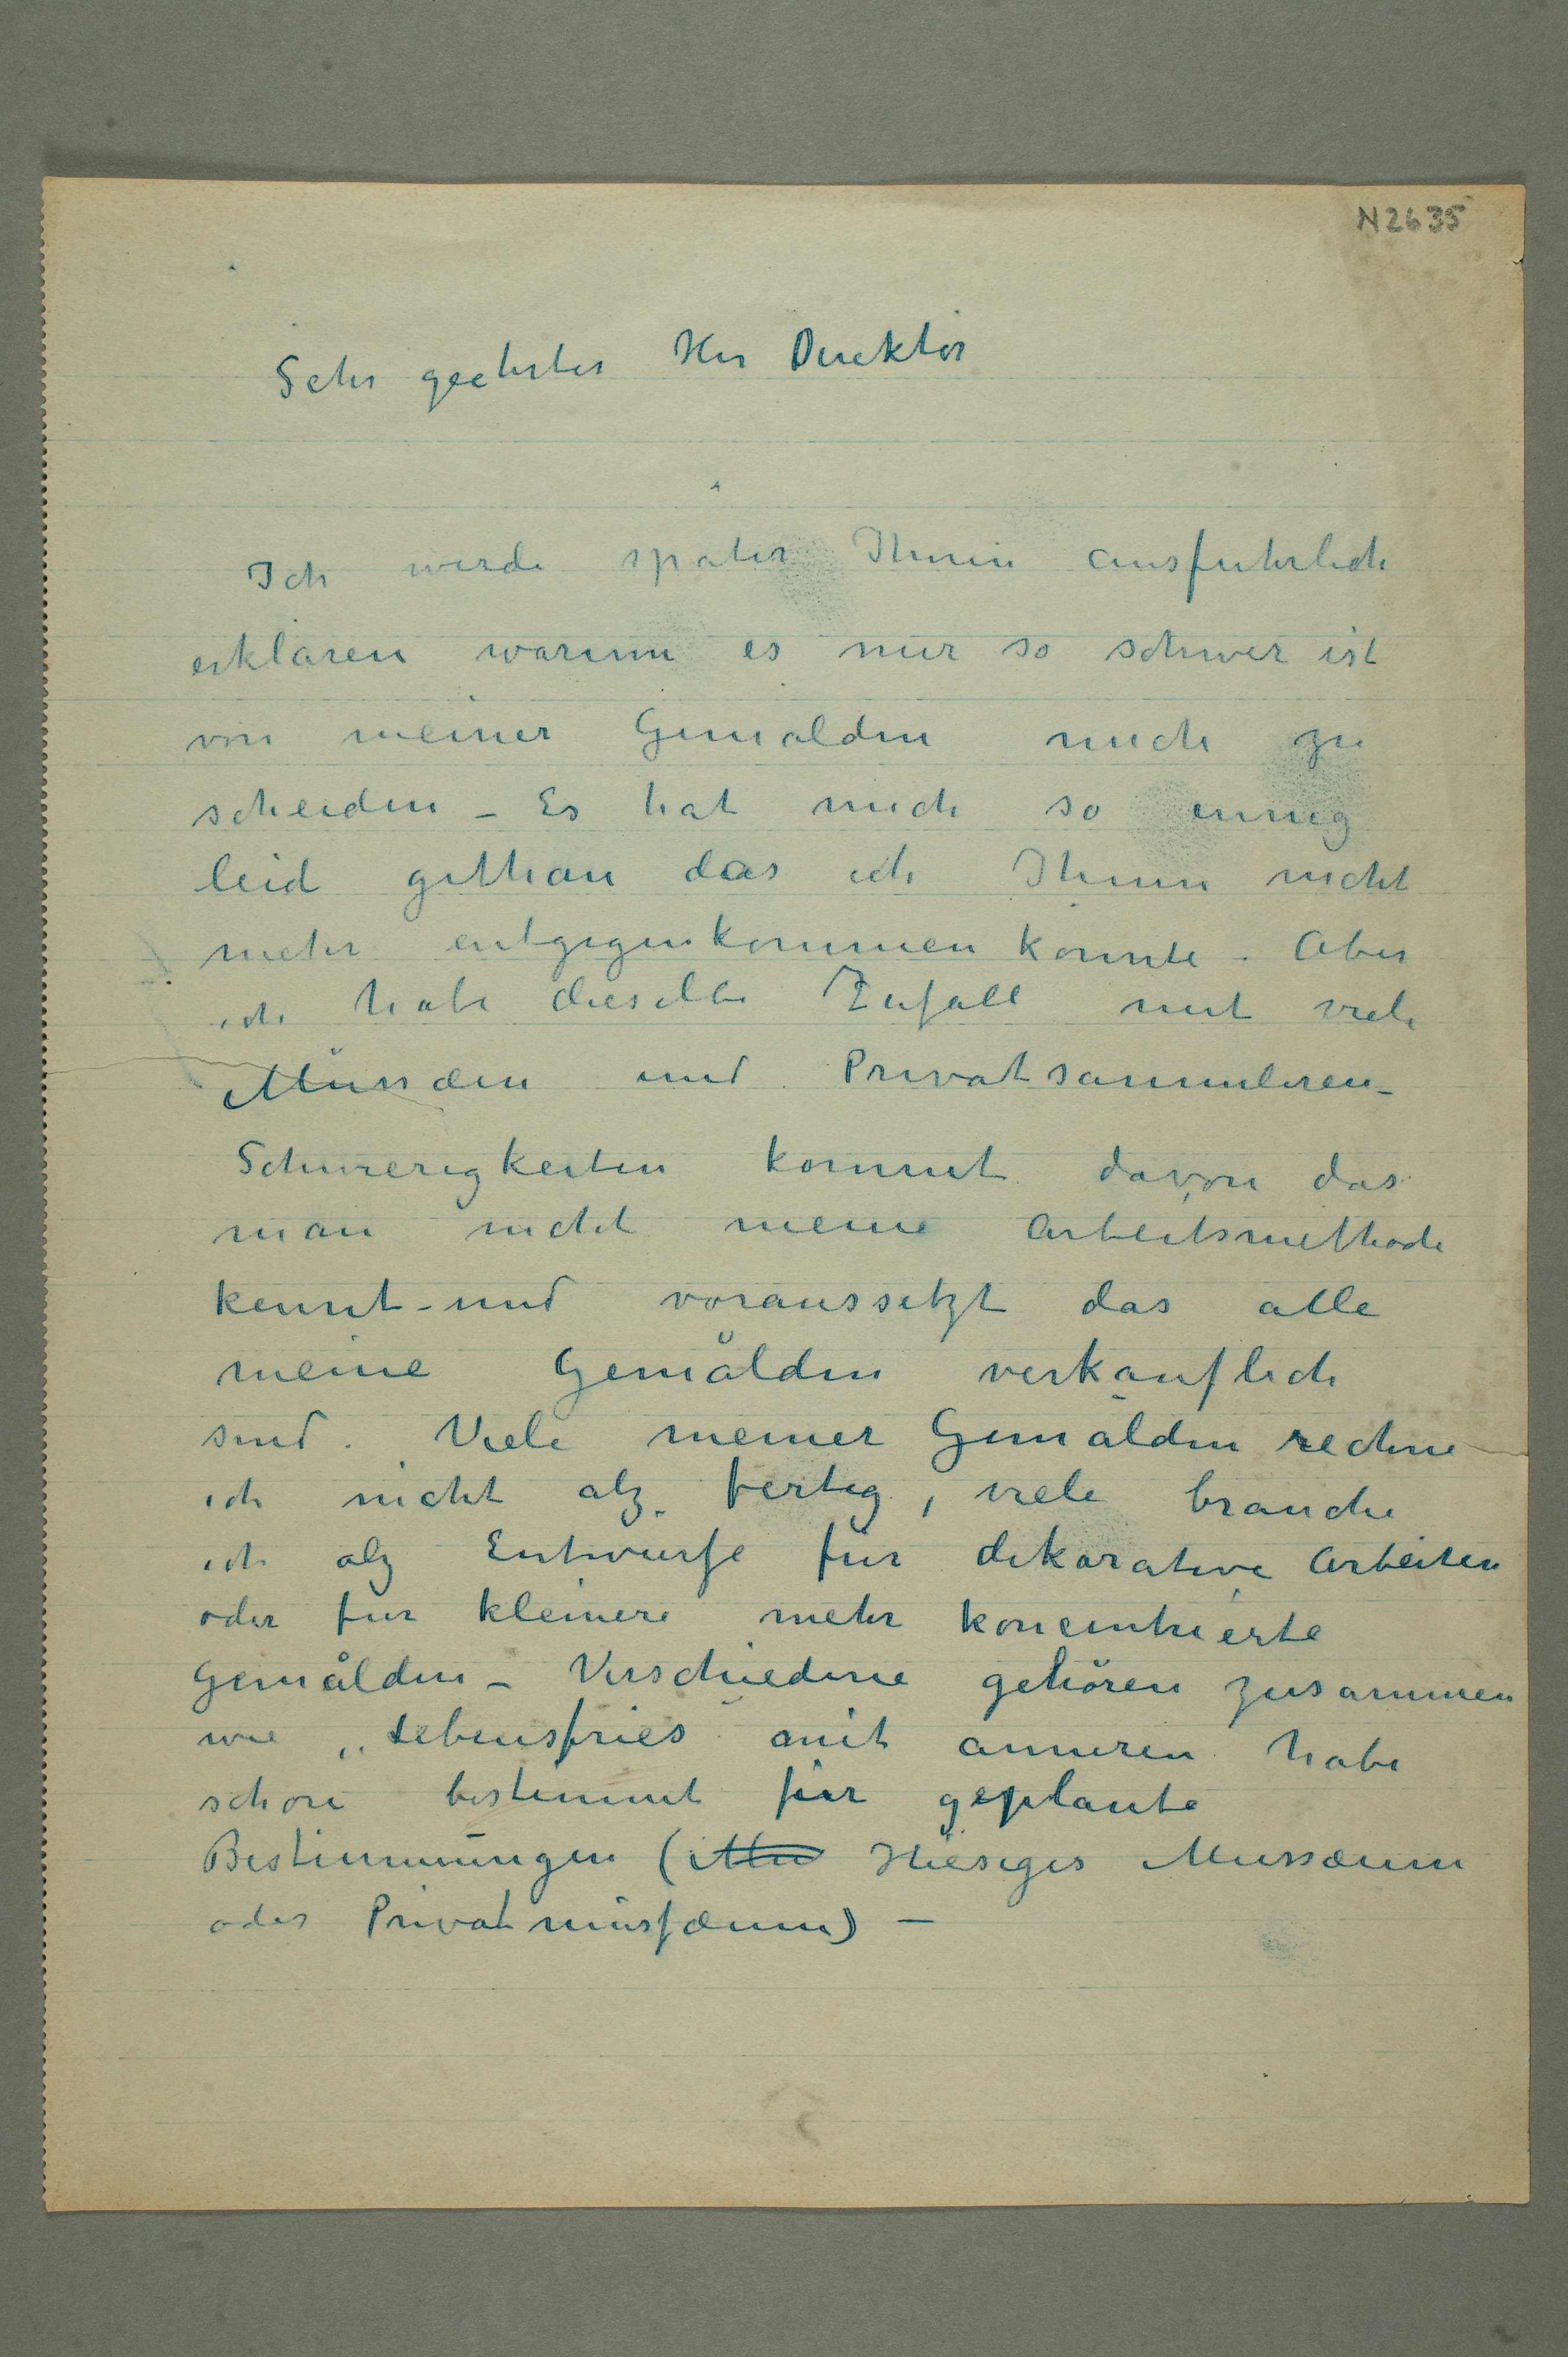 N 2635
Sehr geehrter Her Direktor
Ich werde später Ihnen ausfuhrlich
erklären warum es mir so schwer ist
von meiner Gemälden mich zu
scheiden – Es hat mich so innig
leid gethan das ich Ihnen nicht
mehr entgegenkommen konnte. Aber
ich habe dieselbe Zufall mit viele
Mussæen und Privatsammleren –
Schwierigkeiten kommt davon das
man nicht meine Arbeitsmethode
kennt – und voraussetzt das alle
meine Gemälden verkäuflich
sind. Viele meiner Gemälden rechne
ich nicht alz fertig, viele brauche
ich alz Entwurfe für dekorative Arbeiten
oder fur kleinere mehr koncentrierte
Gemålden – Verschiedene gehören zusammen
wie „Lebensfries mit anneren habe
schon bestimmt für geplante
Bestimmungen (Mu Hiesiges Mussæum
oder Privatmussæum) –